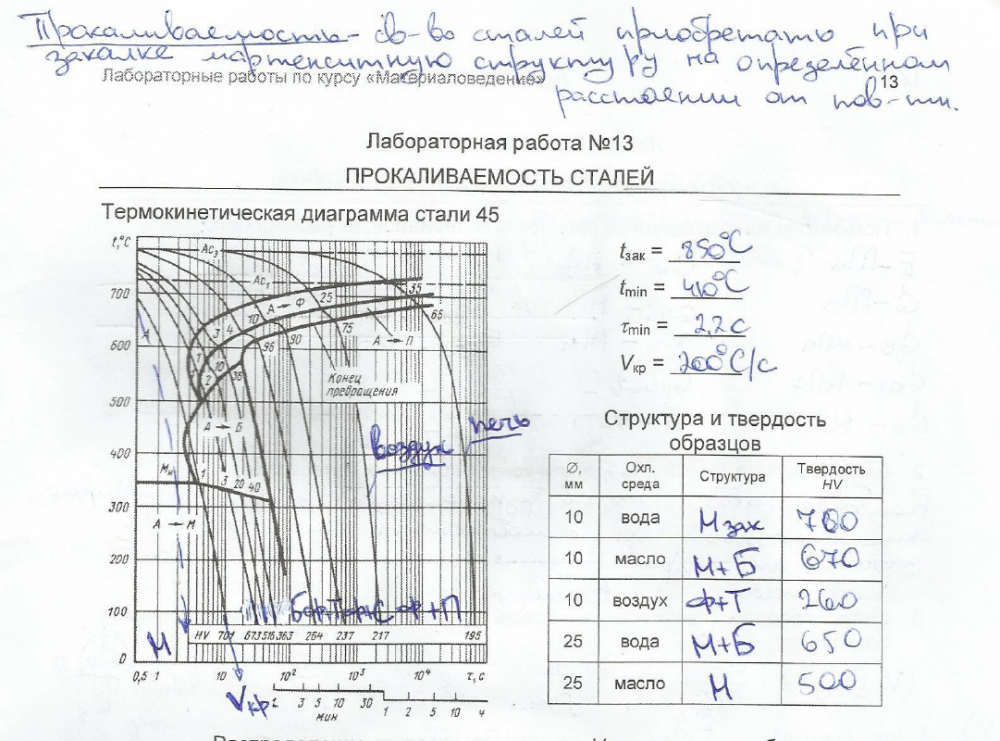 Прокаливаемость - св-во сталей приобретать при
закалке мартенситную структуру на определённом
расстоянии от пов-ти.
Лабораторные работы по курсу «Материаловедение»
13
Лабораторная работа №13
ПРОКАЛИВАЕМОСТЬ СТАЛЕЙ
Термокинетическая диаграмма стали 45
t,°C
Ac₃
Ac₁
700
600
500
400
300
200
100
0
А
А → Ф
25
35
65
10
4
3
1
90
75
А → П
96
10
2
36
Конец
превращения
А → Б
воздух
печь
Мн
1
3
20
40
А → М
М
Ф+П
HV 701 673 516 363 254 237 217 195
0,5 1 10 10² 10³ 10⁴ τ, с
Vкр
1 3 5 10 30
мин
1 2 5 10 ч
tзак = 850°C
tmin = 410°C
τmin = 2,2 с
Vкр = 200°C/с
Структура и твердость
образцов
Ø, мм Охл. среда Структура Твердость HV
10 вода М зак 780
10 масло М+Б 670
10 воздух Ф+Т 260
25 вода М+Б 650
25 масло М 500